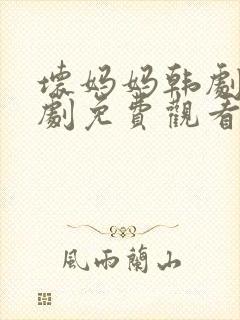 壞媽媽韩劇
劇免費觀看
風雨蘭山